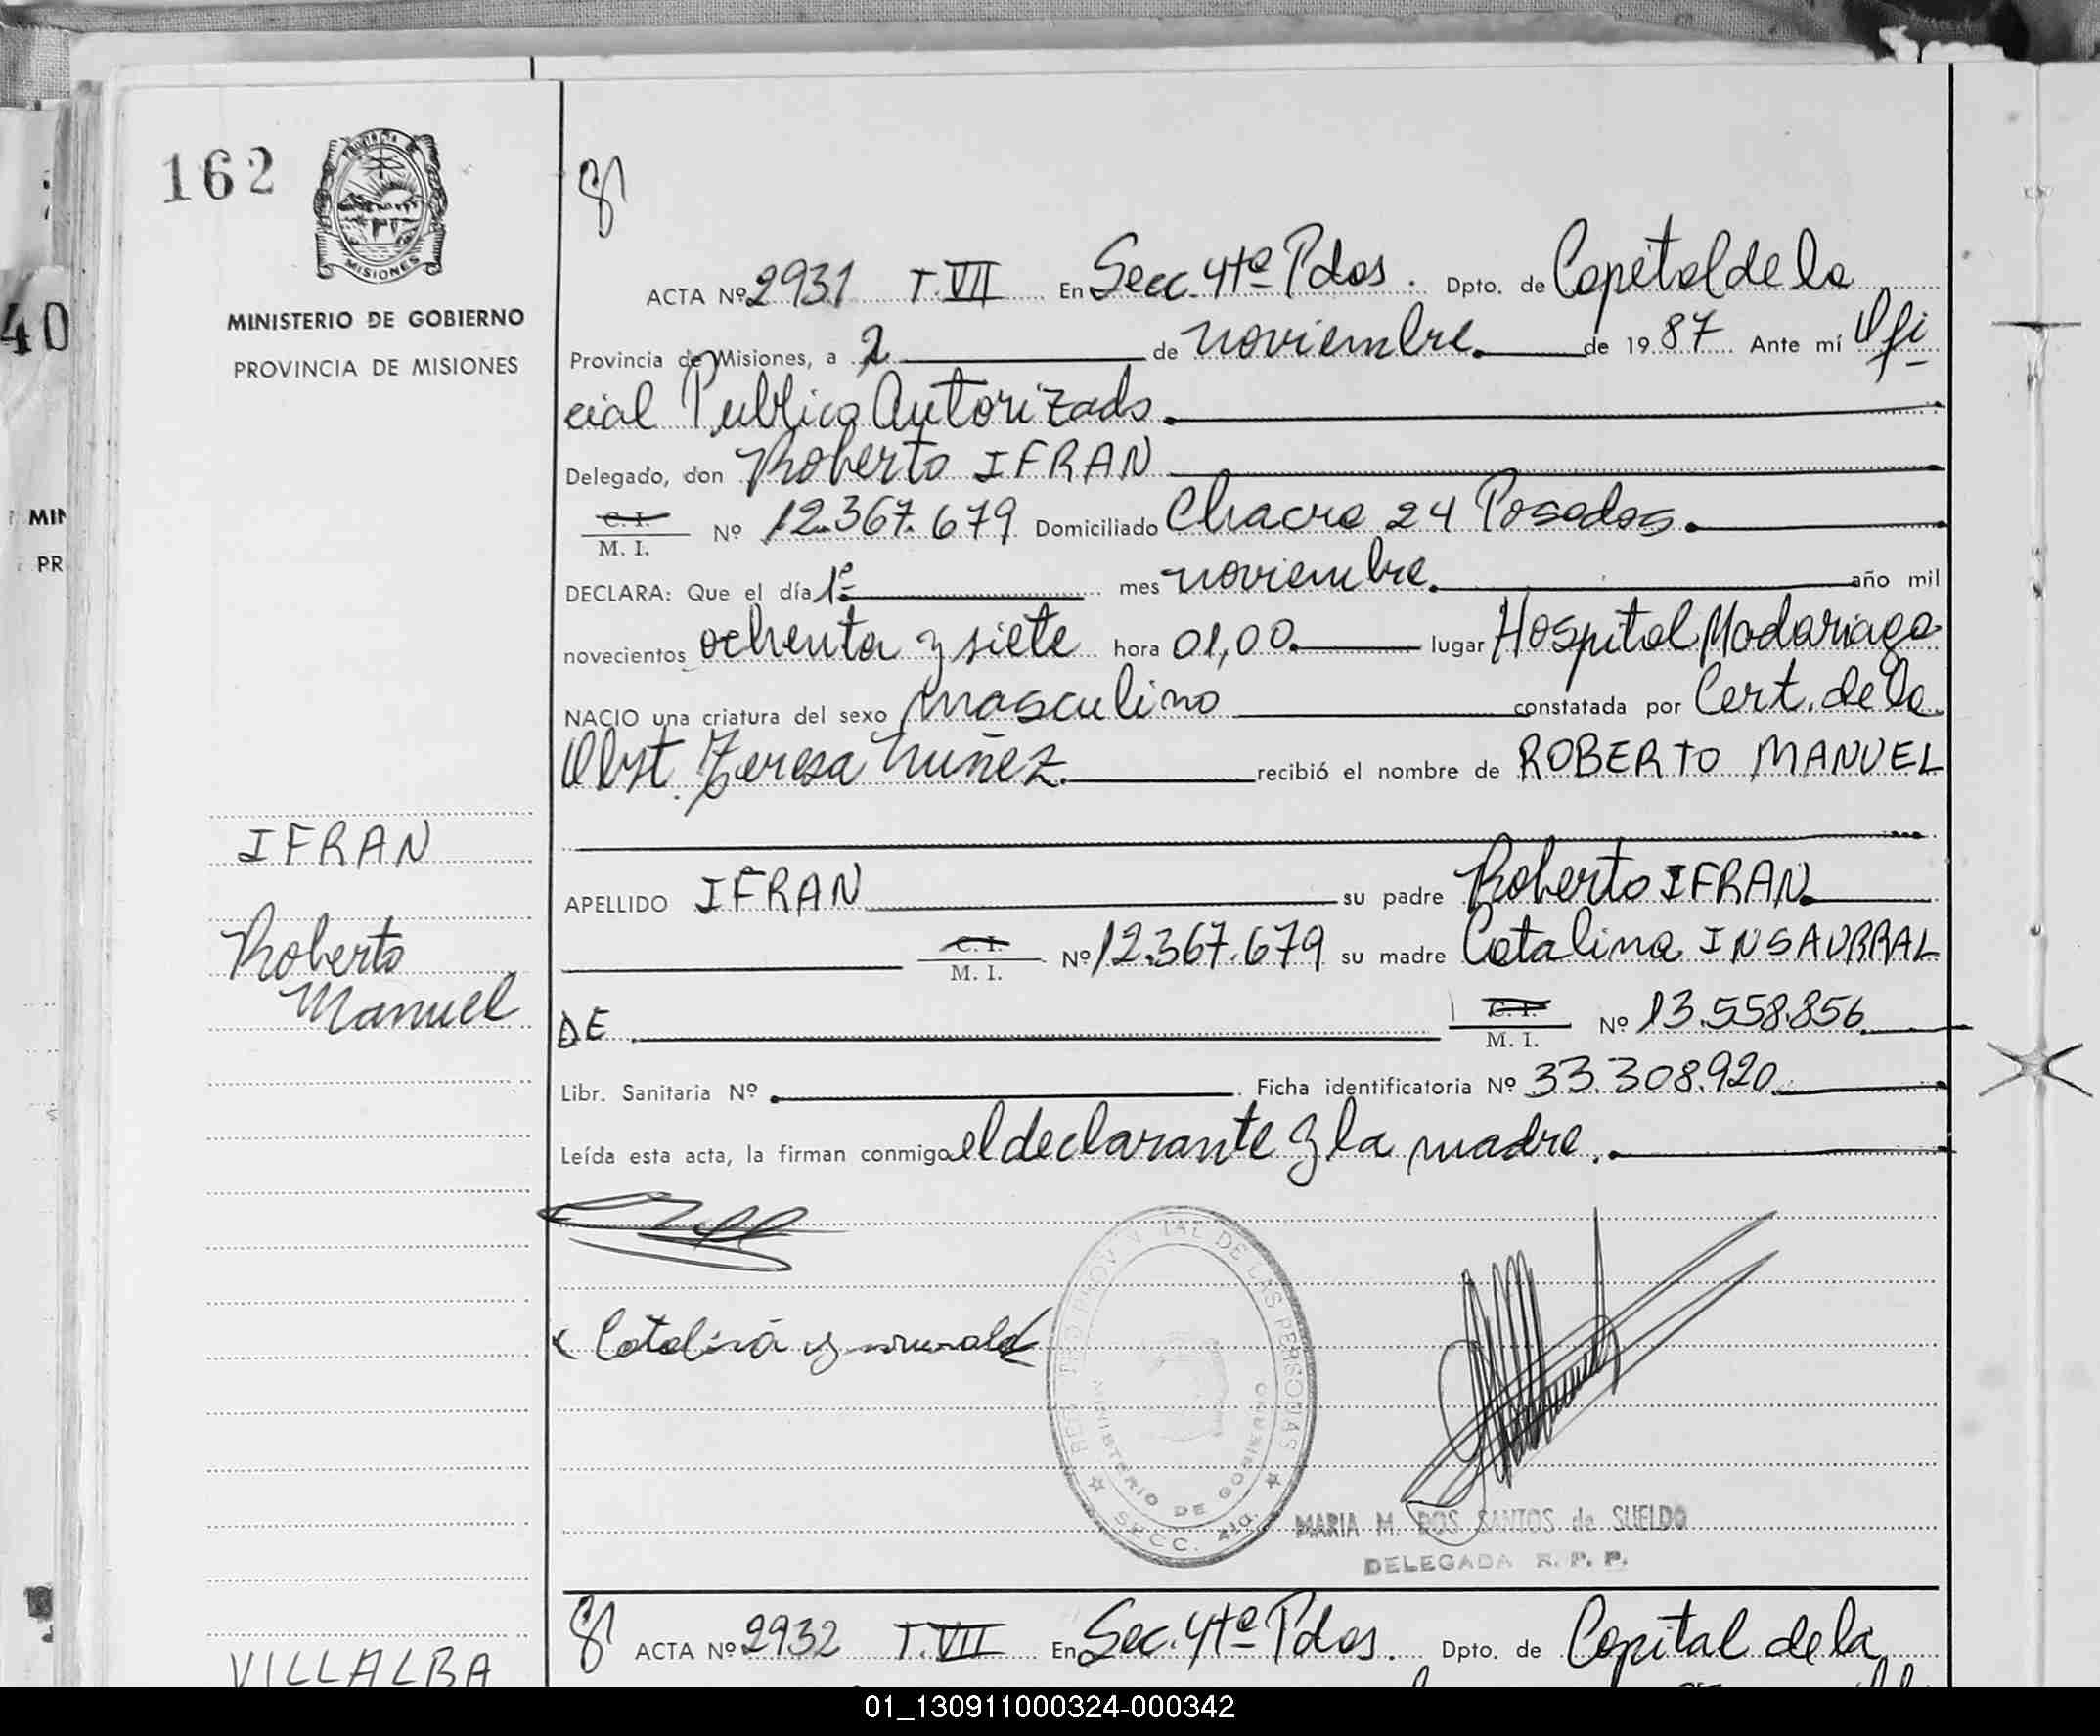 162
PROVINCIA DE
MISIONES
MINISTERIO DE GOBIERNO
PROVINCIA DE MISIONES
40
MIN
PR
ACTA Nº 2931 T. VII En Secc. 4ta Pdas. Dpto. de Capital de la
Provincia de Misiones, a 2 de noviembre de 19 87 Ante mí Ofi
cial Publico Autorizado
Delegado, don Roberto IFRAN
C. I.
M. I. Nº 12.367.679 Domiciliado Chacra 24 Posadas.
DECLARA: Que el día 1º mes noviembre año mil
novecientos ochenta y siete hora 01,00 lugar Hospital Madariaga
NACIO una criatura del sexo masculino constatada por Cert. de la
Obst. Teresa Nuñez recibió el nombre de ROBERTO MANUEL
IFRAN
Roberto
Manuel
APELLIDO IFRAN su padre Roberto IFRAN
C. I.
M. I. Nº 12.367.679 su madre Catalina INSAURRAL
DE C. I.
M. I. Nº 13.558.856
Libr. Sanitaria Nº Ficha identificatoria Nº 33.308.920
Leída esta acta, la firman conmigo el declarante y la madre.
REGISTRO PROVINCIAL DE LAS PERSONAS
MINISTERIO DE GOBIERNO
SECC. 4ta.
MARIA M. DOS SANTOS de SUELDO
DELEGADA R. P. P.
VILLALBA
ACTA Nº 2932 T. VII En Sec. 4ta Pdas. Dpto. de Capital de la
01_130911000324-000342